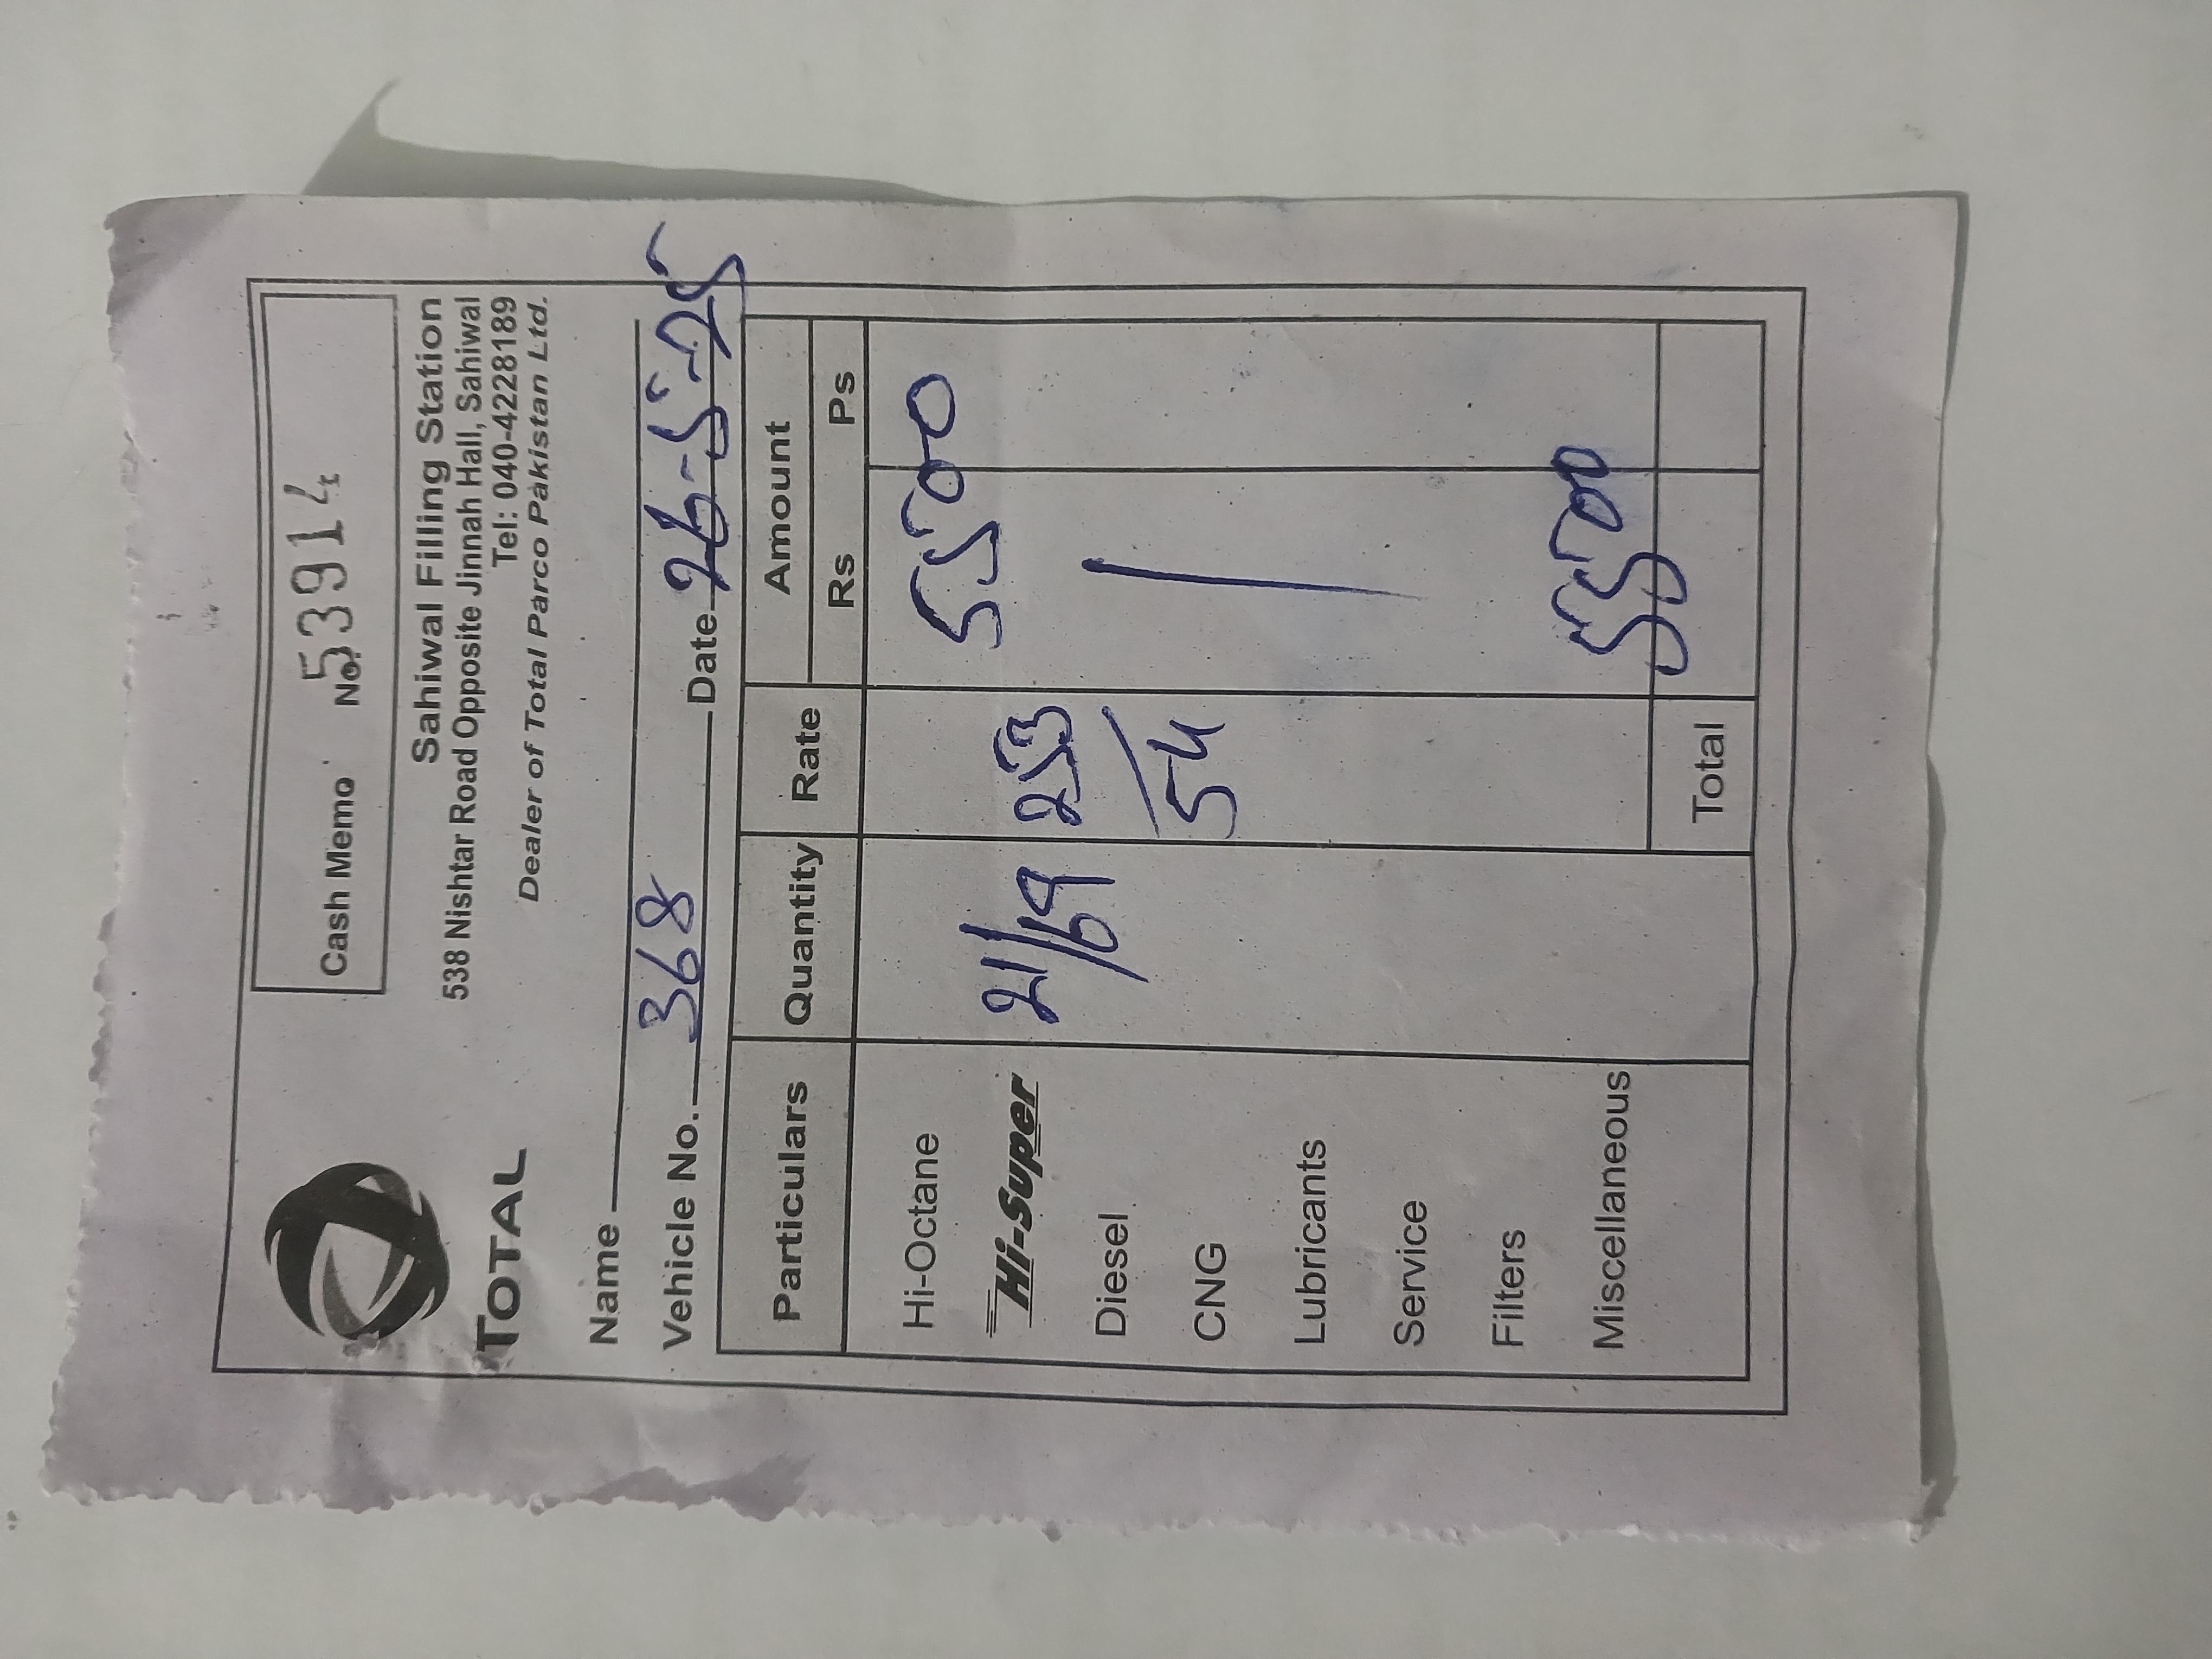 Cash Memo No. 53914
TOTAL
Sahiwal Filling Station
538 Nishtar Road Opposite Jinnah Hall, Sahiwal
Tel: 040-4228189
Dealer of Total Parco Pakistan Ltd.
Name
Vehicle No. 368 Date 26-5-25
Particulars Quantity Rate Amount
Rs Ps
Hi-Octane 5500
Hi-Super 21/69 253/54
Diesel
CNG
Lubricants
Service
Filters
Miscellaneous
Total 5500